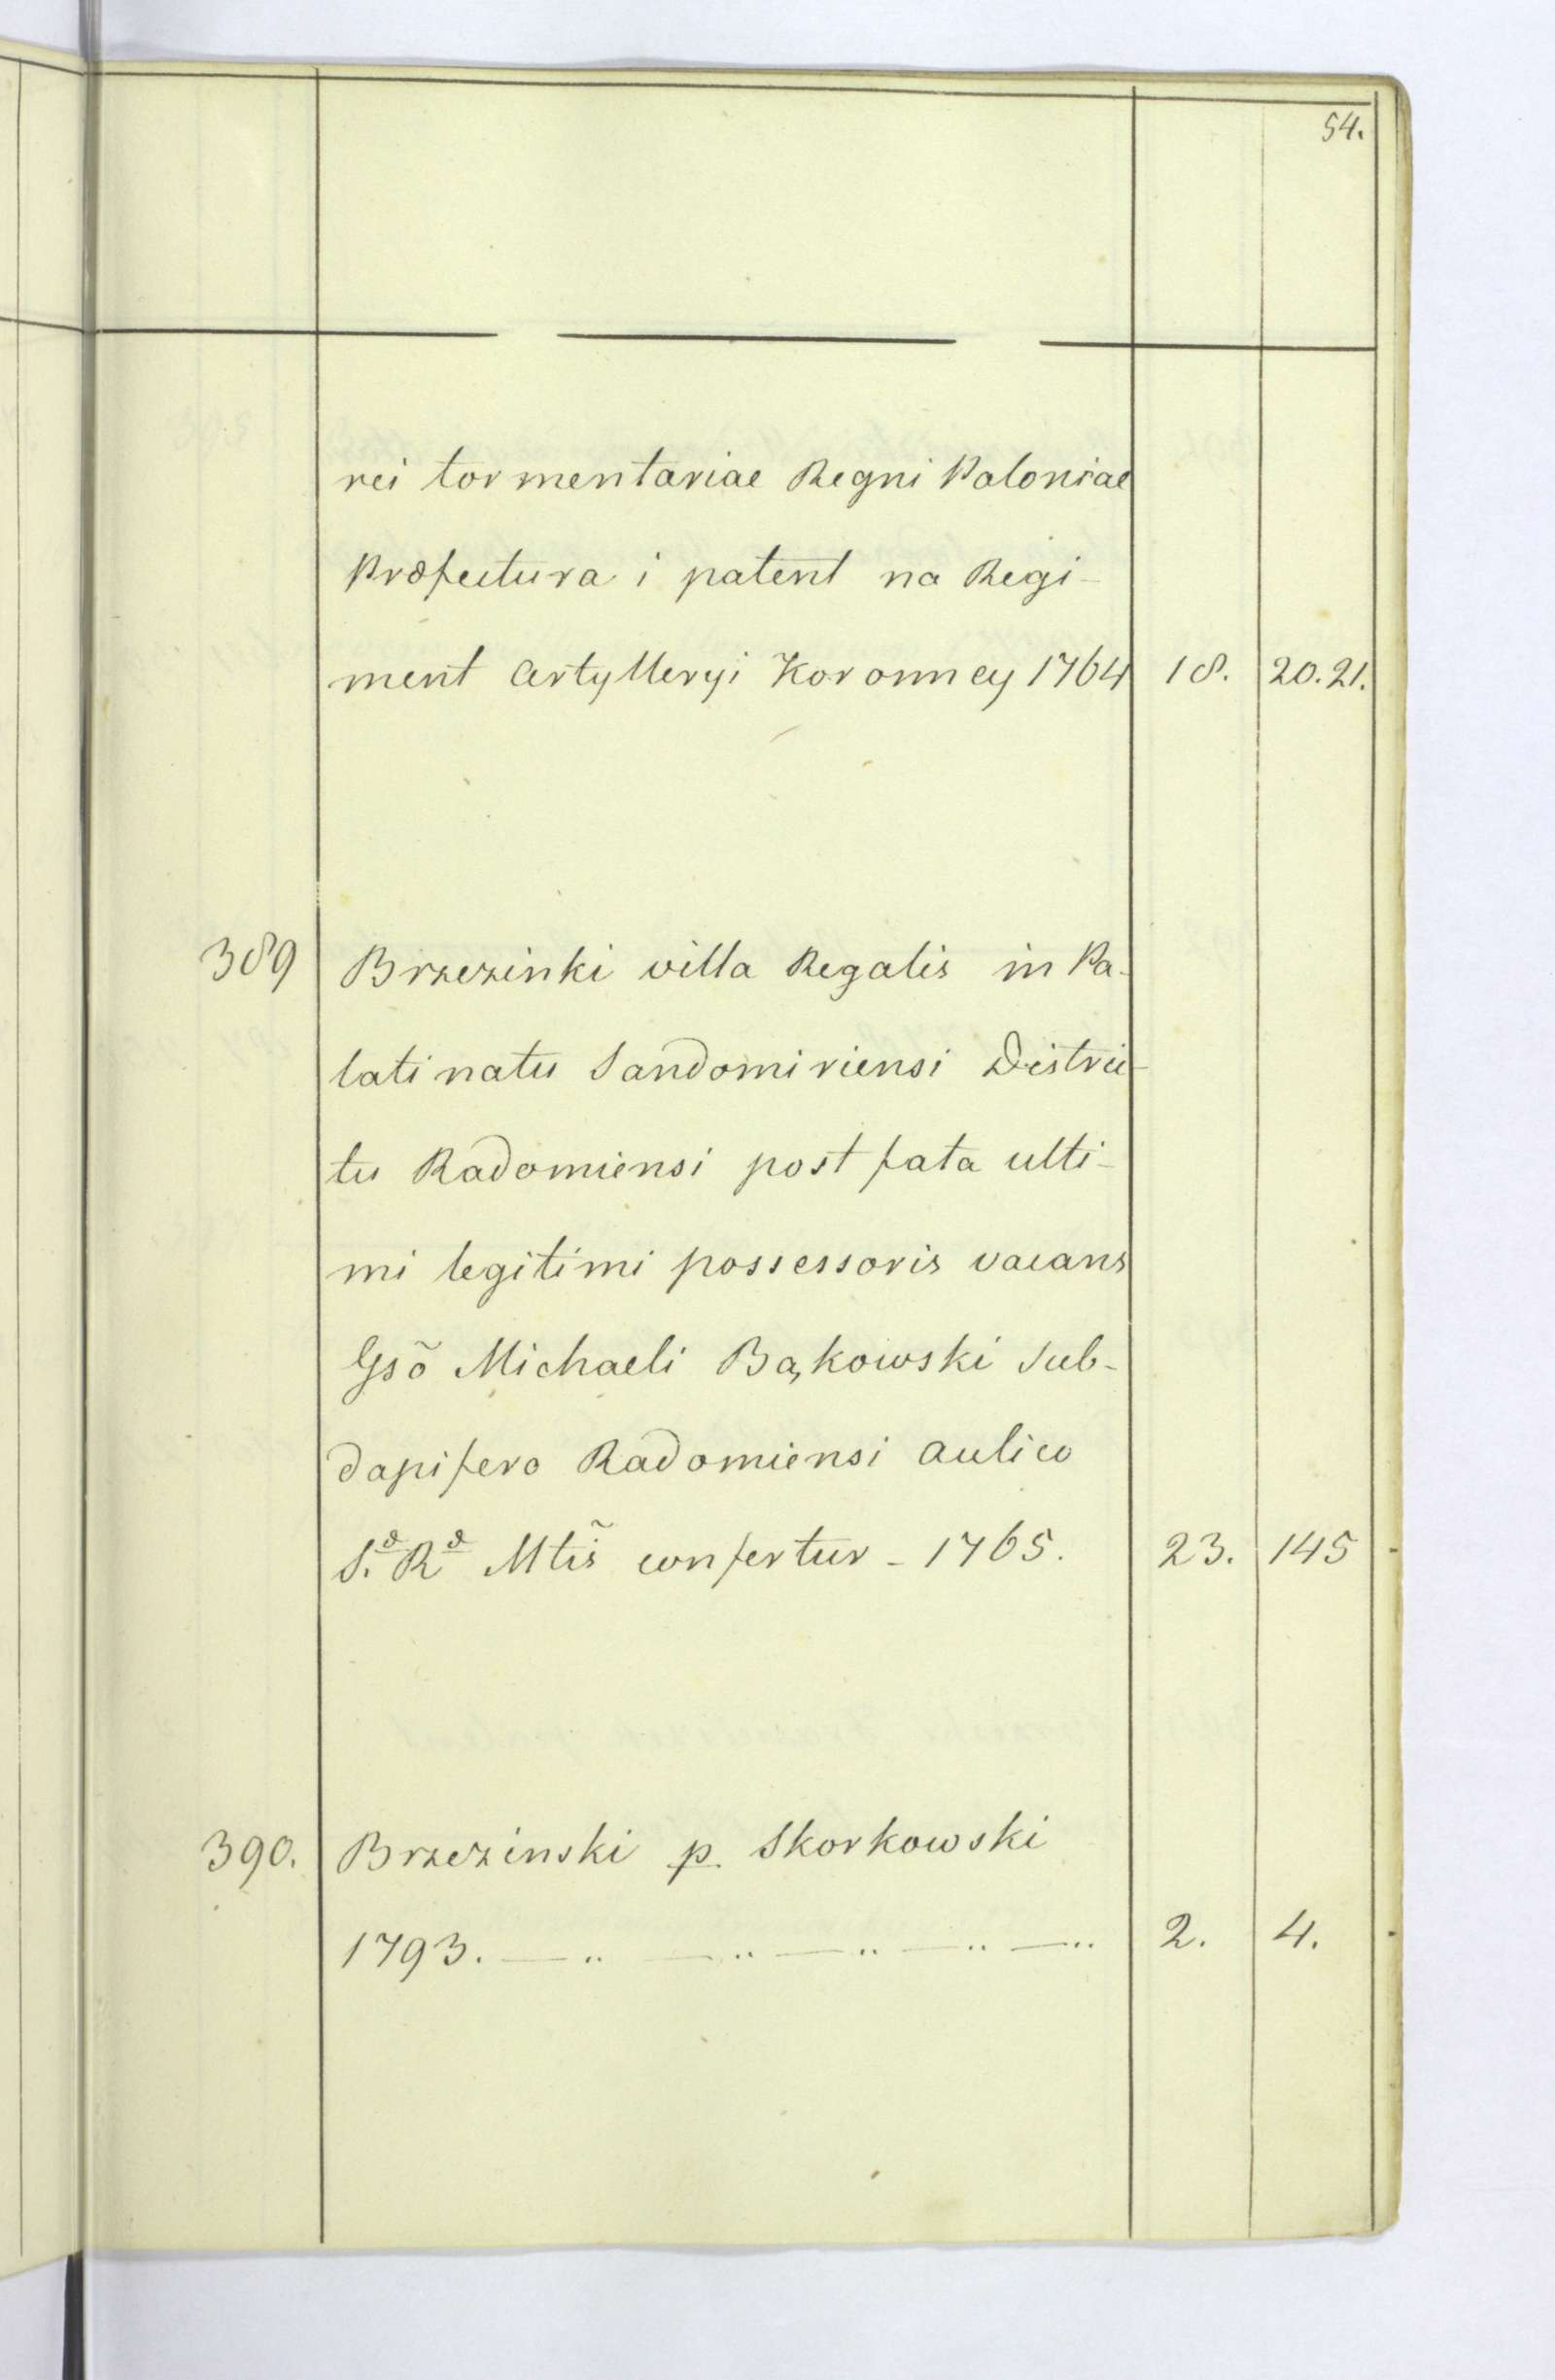 54.
rei tormentariae Regni Poloniae
Præfectura i patent na Regi-
ment Artylleryi Koronney 1764 18. 20.21.
389 Brzezinki villa Regalis in Pa-
latinatu Sandomiriensi Distric-
tu Radomiensi post fata ulti-
mi legitimi possessoris vacans
Gsõ Michaeli Bąkowski Sub-
dapifero Radomiensi aulico
S. R Mtis̃ confertur - 1765. 23. 145
390. Brzezinski p. Skorkowski
1793. — „ — „ — „ — „ — „ 2. 4.